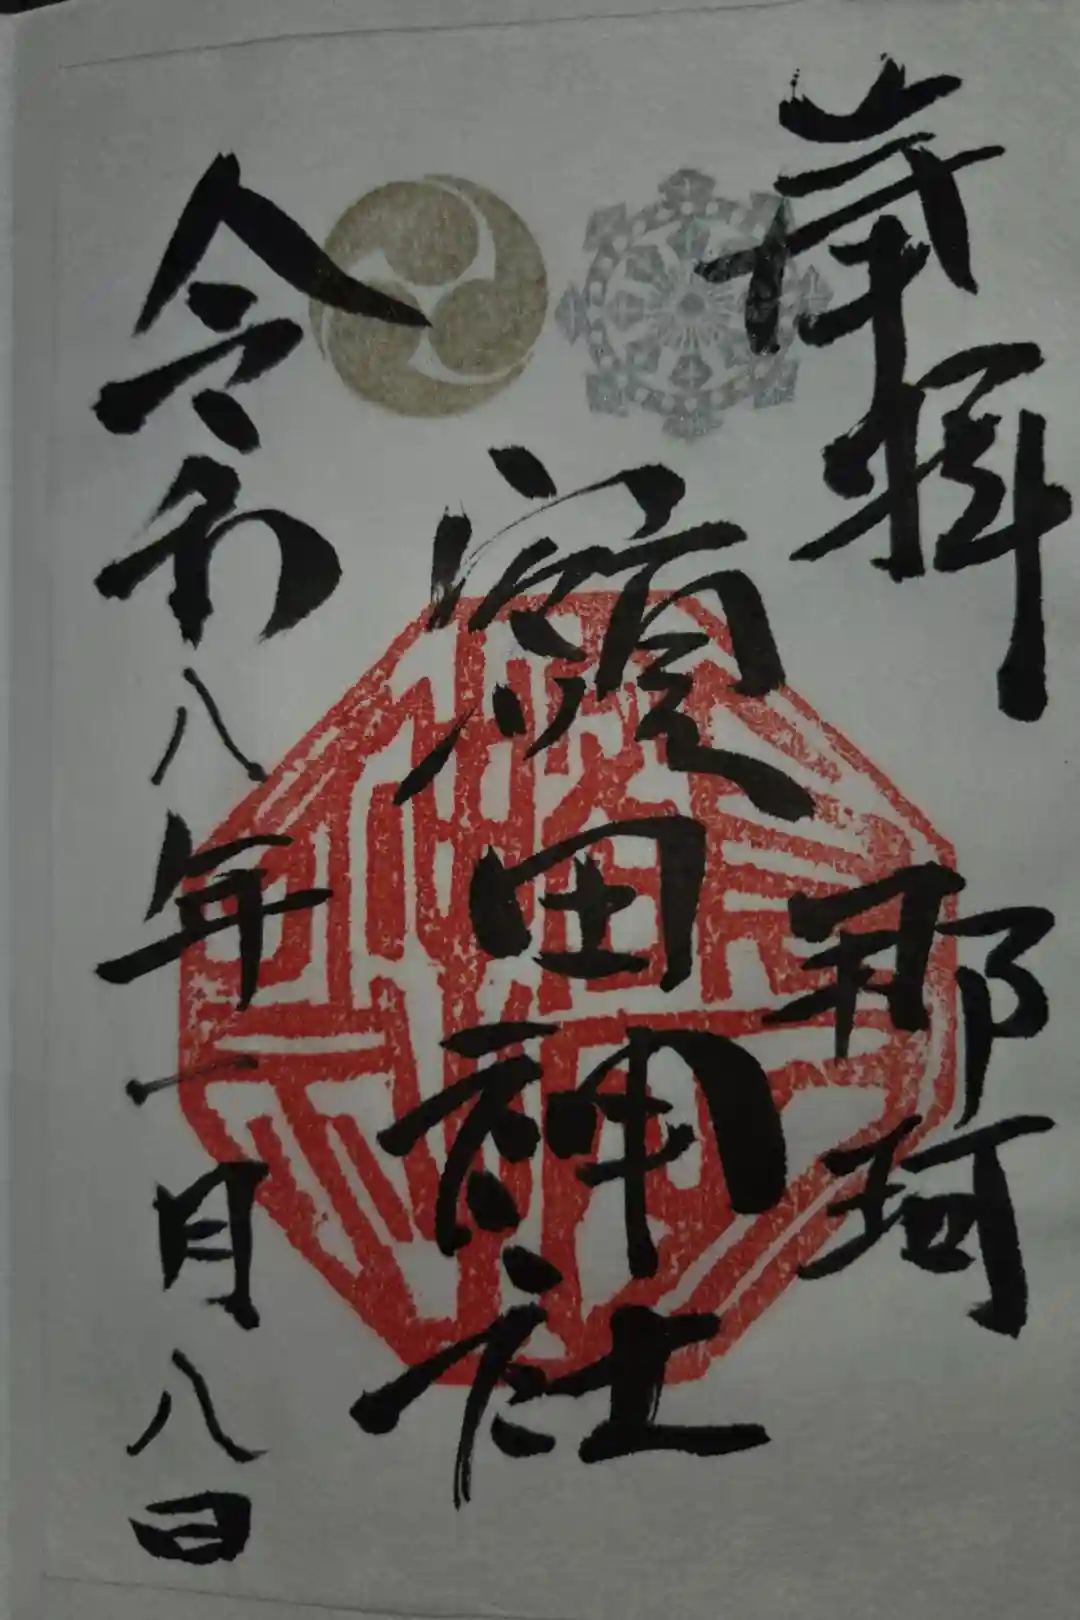 奉拝
那珂
額田神社
令和八年一月八日